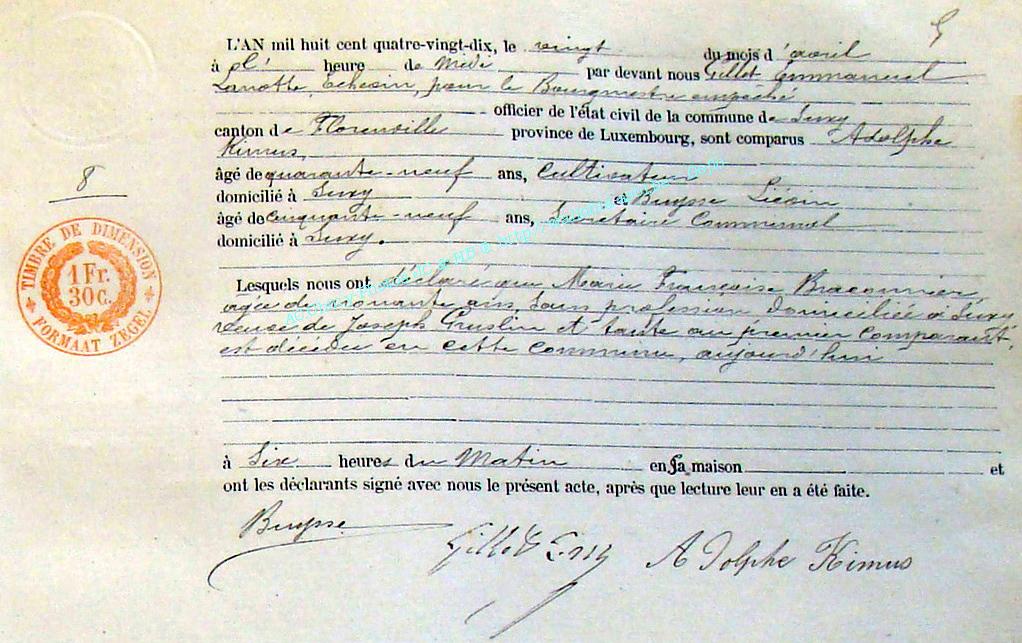 5
L'AN mil huit cent quatre-vingt-dix, le vingt du mois d'avril
à l' heure de Midi par devant nous Gillet Emmanuel
Lanotte, Echevin, pour le Bourgmestre empêché
officier de l'état civil de la commune de Suxy
canton de Florenville province de Luxembourg, sont comparus Adolphe
Kimus
âgé de quarante-neuf ans, Cultivateur
domicilié à Suxy et Buysse Liévin
âgé de cinquante-neuf ans, Secrétaire Communal
domicilié à Suxy.
8
TIMBRE DE DIMENSION
1 Fr.
30 c.
FORMAAT ZEGEL
Lesquels nous ont déclaré que Marie Françoise Braconnier,
agée de nonante ans, sans profession domiciliée à Suxy
veuve de Joseph Gruslin et tante au premier comparant,
est décédée en cette commune, aujourd'hui
à six heures du Matin en sa maison et
ont les déclarants signé avec nous le présent acte, après que lecture leur en a été faite.
Buysse
Gillet Em
Adolphe Kimus